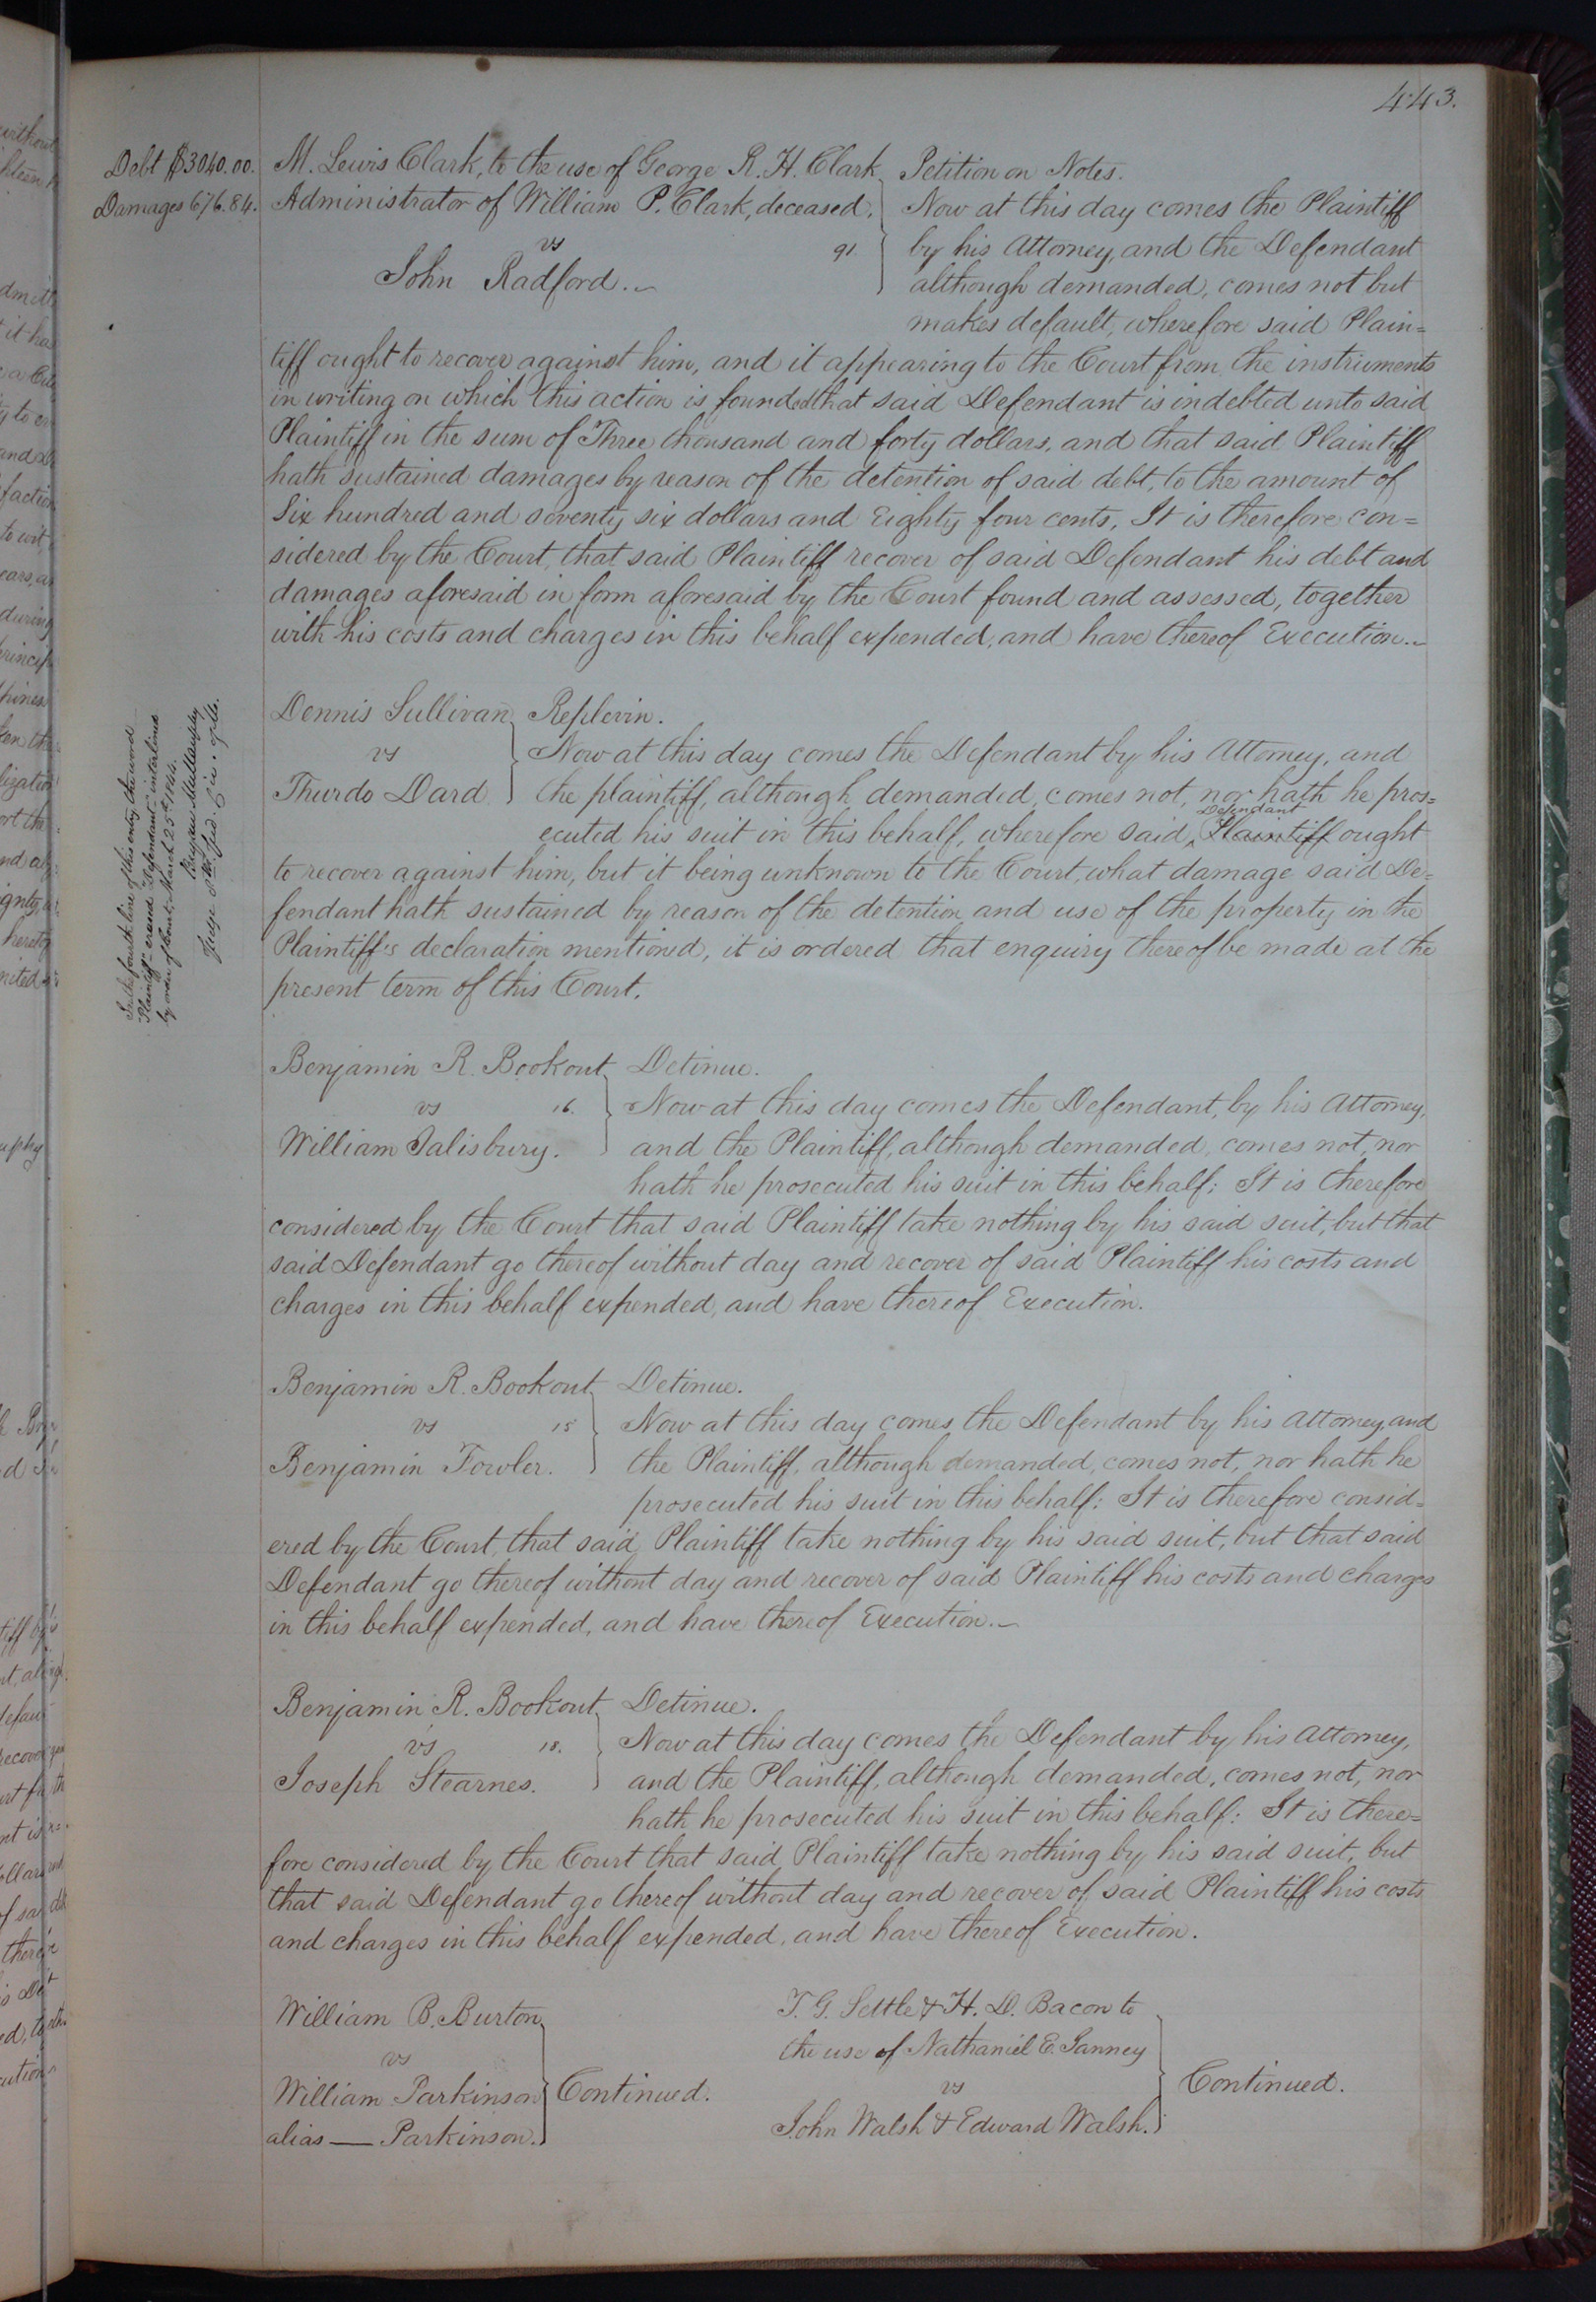 443.
Debt $3040.00.
Damages 676.84.
M. Lewis Clark, to the use of George R. H. Clark
Administrator of William P. Clark, deceased.
vs 91.
John Radford.
Petition on Notes.
Now at this day comes the Plaintiff
by his Attorney, and the Defendant
although demanded, comes not but
makes default, wherefore said Plain=
tiff ought to recover against him, and it appearing to the Court from the instruments
in writing on which this action is founded that said Defendant is indebted unto said
Plaintiff in the sum of Three thousand and forty dollars, and that said Plaintiff
hath sustained damages by reason of the detention of said debt, to the amount of
Six hundred and seventy six dollars and Eighty four cents. It is therefore con=
sidered by the Court, that said Plaintiff recover of said Defendant his debt and
damages aforesaid in form aforesaid by the Court found and assessed, together
with his costs and charges in this behalf expended, and have thereof Execution.
In the fourth line of this entry the word
"Plaintiff" erased "Defendant" interlined
by order of Court, March 25th 1844.
Bryan Mullanphy
Judge 8th Jud. Cir. of Mo.
Dennis Sullivan
vs
Thurdo Dard
Replevin.
Now at this day comes the Defendant by his Attorney, and
the plaintiff, although demanded, comes not, nor hath he pros=
Defendant
ecuted his suit in this behalf, wherefore said ^ Plaintiff ought
to recover against him, but it being unknown to the Court, what damage said De=
fendant hath sustained by reason of the detention and use of the property in the
Plaintiff's declaration mentioned, it is ordered that enquiry thereof be made at the
present term of this Court.
Benjamin R. Bookout
vs 16.
William Salisbury.
Detinue.
Now at this day comes the Defendant, by his Attorney,
and the Plaintiff, although demanded, comes not, nor
hath he prosecuted his suit in this behalf: It is therefore
considered by the Court that said Plaintiff take nothing by his said suit, but that
said Defendant go thereof without day and recover of said Plaintiff his costs and
charges in this behalf expended, and have thereof Execution.
Benjamin R. Bookout
vs 15
Benjamin Fowler.
Detinue.
Now at this day comes the Defendant by his Attorney, and
the Plaintiff, although demanded, comes not, nor hath he
prosecuted his suit in this behalf: It is therefore consid=
ered by the Court, that said Plaintiff take nothing by his said suit, but that said
Defendant go thereof without day and recover of said Plaintiff his costs and charges
in this behalf expended, and have thereof Execution.
Benjamin R. Bookout
vs 18.
Joseph Stearnes.
Detinue.
Now at this day comes the Defendant by his Attorney,
and the Plaintiff, although demanded, comes not, nor
hath he prosecuted his suit in this behalf: It is there=
fore considered by the Court that said Plaintiff take nothing by his said suit, but
that said Defendant go thereof without day and recover of said Plaintiff his costs
and charges in this behalf expended, and have thereof Execution.
William B. Burton
vs
William Parkinson
alias — Parkinson.
Continued.
T. G. Settle & H. D. Bacon to
the use of Nathaniel E. Janney
vs
John Walsh & Edward Walsh.
Continued.